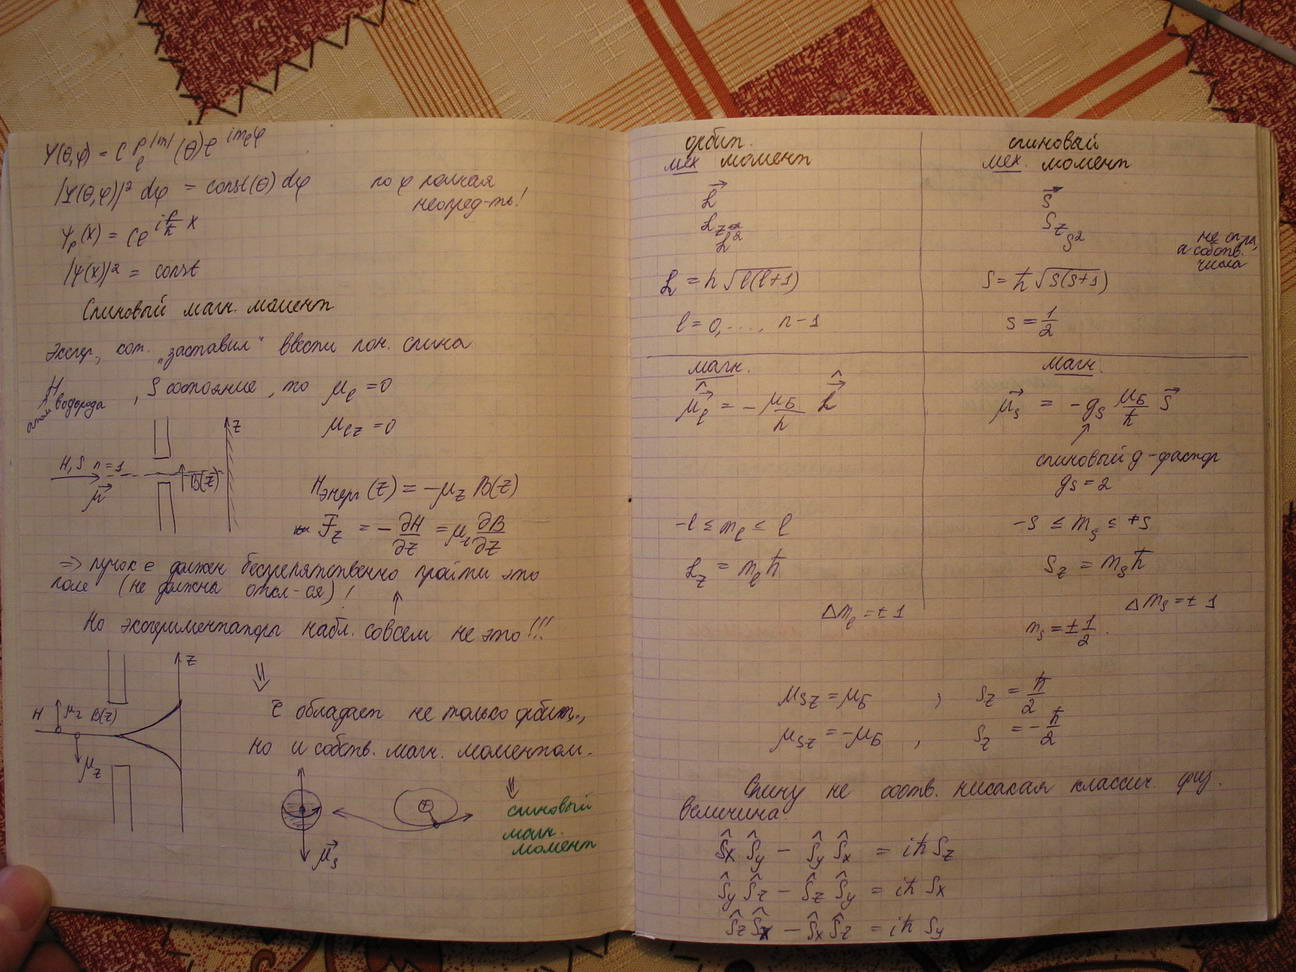 Y(θ,φ) = C P_l^|m| (θ) e^{i m_l φ}
|Y(θ,φ)|² dφ = const(θ) dφ
по φ полная
неопред-ть!
ψ_p(x) = C e^{i p/ħ x}
|ψ(x)|² = const
Спиновый магн. момент
Экспер., кот. „заставил" ввести пон. спина
H
атом водорода, S состояние, то μ_l = 0
μ_lz = 0
z
H, S n=1
μ⃗
B(z)
H_энерг (z) = -μ_z B(z)
F_z = -∂H/∂z = μ_z ∂B/∂z
⇒ пучок e должен беспрепятственно пройти это
поле (не должна откл-ся)!
Но экспериментаторы набл. совсем не это!!!
z
H μ_z B(z)
μ_z
⇓
ē обладает не только орбит.,
но и собств. магн. моментом.
⇓
спиновый
магн.
момент
μ⃗_s
орбит.
мех момент
L⃗
L_z
L²
L = ħ√l(l+1)
l = 0, ..., n-1
магн.
μ⃗_l = - μ_Б/ħ L⃗
-l ≤ m_l ≤ l
L_z = m_l ħ
Δm_l = ±1
спиновый
мех. момент
S⃗
S_z
S²
а собств.
числа
S = ħ√s(s+1)
s = 1/2
магн.
μ⃗_s = -g_s μ_Б/ħ S⃗
спиновый g-фактор
g_s = 2
-s ≤ m_s ≤ +s
S_z = m_s ħ
Δm_s = ±1
m_s = ±1/2.
μ_sz = μ_Б ; S_z = ħ/2
μ_sz = -μ_Б , S_z = -ħ/2
Спину не соотв. никакая классич. физ.
величина
Ŝ_x Ŝ_y - Ŝ_y Ŝ_x = iħ S_z
Ŝ_y Ŝ_z - Ŝ_z Ŝ_y = iħ S_x
Ŝ_z Ŝ_x - Ŝ_x Ŝ_z = iħ S_y